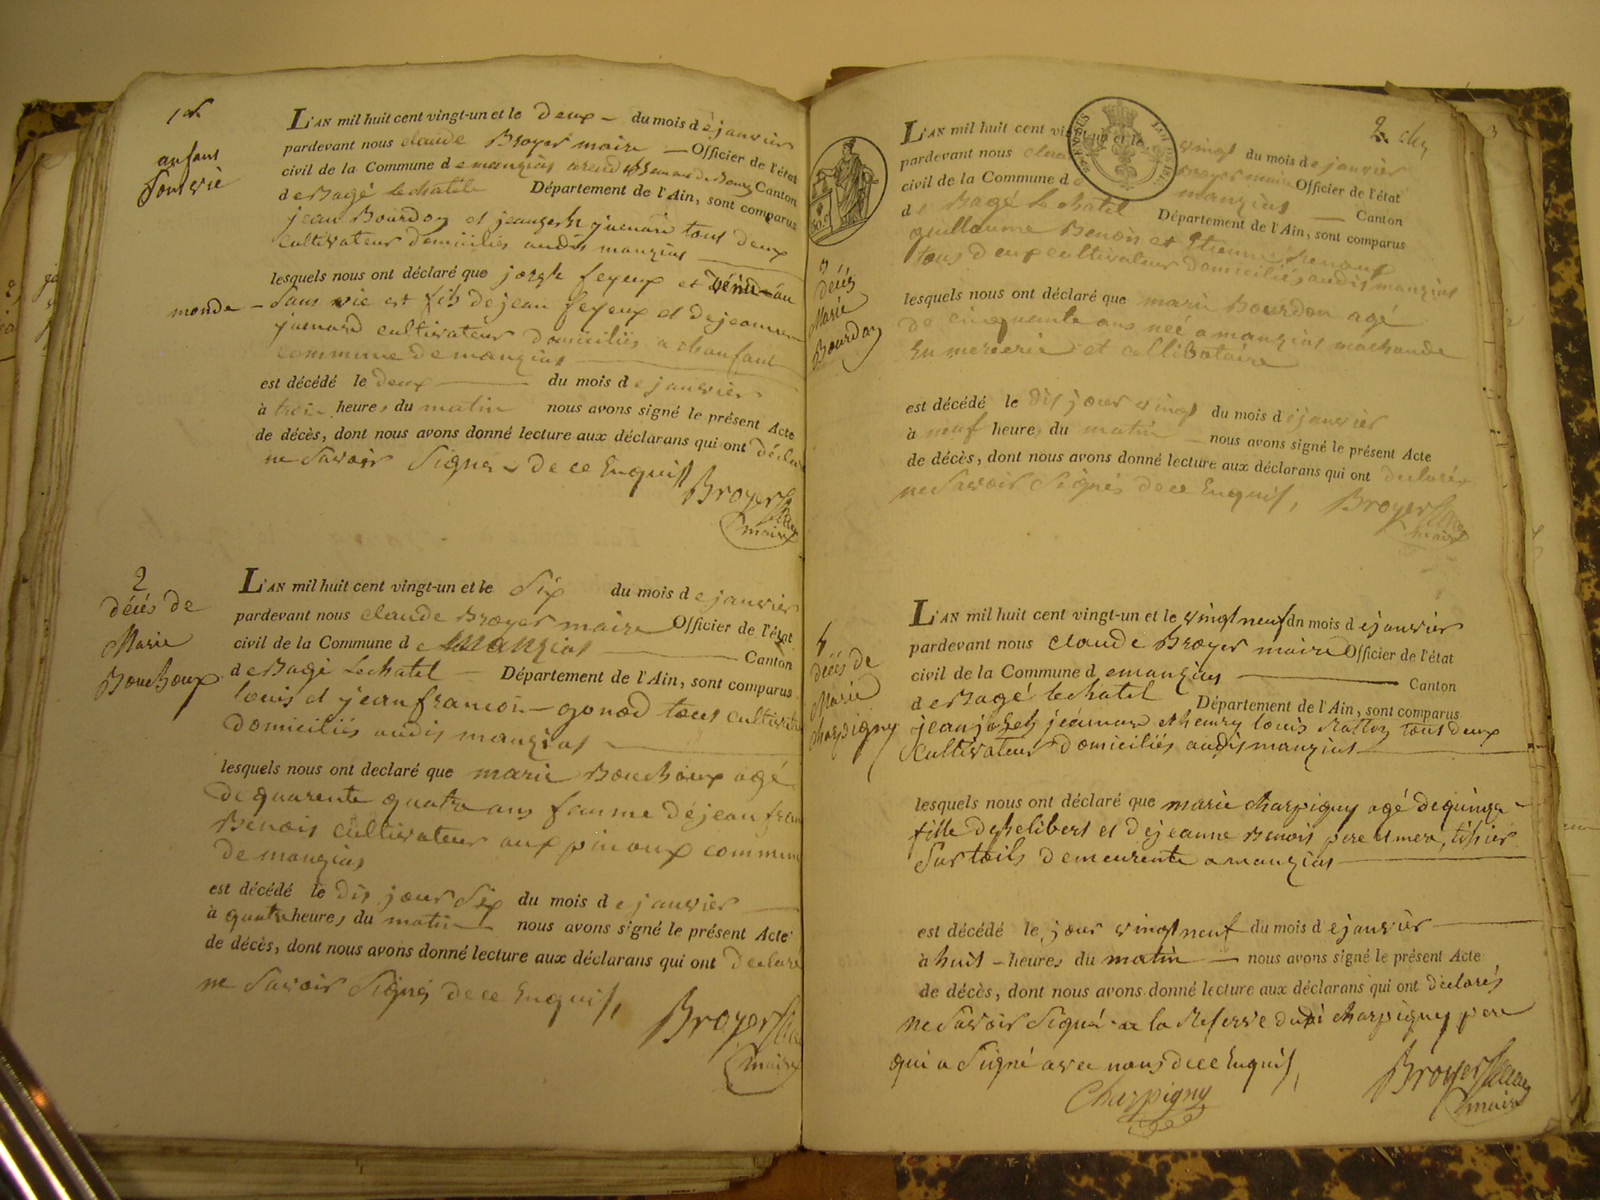 1er
anfans
Sans vie
L'AN mil huit cent vingt-un et le deux du mois de janvier
pardevant nous claude Broyer maire Officier de l'état
civil de la Commune de manziat Canton
de Bagé Lechatel Département de l'Ain, sont comparus
jean Bourdon et jeanjosh juenard tous deux
cultivateur domiciliés audis manziat
lesquels nous ont déclaré que joseph feyeux et vénu au
monde Sans vie est fils de jean feyeux et de jeanne
juenard cultivateur domiciliés a chanfant
commune de manziat
est décédé le deux du mois de janvier
à trois heures du matin nous avons signé le présent Acte
de décès, dont nous avons donné lecture aux déclarans qui ont déclaré
ne Savoir Signer de ce Enquis
Broyer
maire
2
déiés de
Marie
Bouchoux
L'AN mil huit cent vingt-un et le Six du mois de janvier
pardevant nous claude Broyer maire Officier de l'état
civil de la Commune de manziat Canton
de Bagé Lechatel Département de l'Ain, sont comparus
louis et jean francois gonod tous cultivateur
domiciliés audis manziat
lesquels nous ont declaré que marie Bouchoux agé
de quarente quatre ans famme de jean fran
Benois cultivateur aux pinoux commune
de manziat
est décédé le dis jour Six du mois de janvier
à quatre heures du matin nous avons signé le présent Acte
de décès, dont nous avons donné lecture aux déclarans qui ont declaré
ne Savoir Signés de ce Enquis,
Broyer
maire
2.
L'AN mil huit cent vingt-un et le vingt du mois de janvier
pardevant nous claude Broyer maire Officier de l'état
civil de la Commune de manziat Canton
de Bagé Lechatel Département de l'Ain, sont comparus
guillaume Benois et Etienne
tous deux cultivateur domiciliés audis manziat
3
déiés
Marie
Bourdon
lesquels nous ont déclaré que marie Bourdon agé
de cinquante ans neé a manziat machande
En mercerie et cellibataire
est décédé le dis jour vingt du mois de janvier
à neuf heures du matin nous avons signé le présent Acte
de décès, dont nous avons donné lecture aux déclarans qui ont declarés
ne Savoir Signés de ce Enquis,
Broyer
maire
4
déiés de
Marie
charpigny
L'AN mil huit cent vingt-un et le vingt neuf du mois de janvier
pardevant nous claude Broyer maire Officier de l'état
civil de la Commune de manziat Canton
de Bagé lechatel Département de l'Ain, sont comparus
jean joseph juenard et henry louis tous deux
cultivateur domiciliés audis manziat
lesquels nous ont déclaré que marie charpigny agé de quinze
fille de philibert et de jeanne Benois pere et mere, tissier
Sur toils demeurente a manziat
est décédé le jour vingt neuf du mois de janvier
à huit heures du matin nous avons signé le présent Acte
de décès, dont nous avons donné lecture aux déclarans qui ont déclarés
ne Savoir Signé a la Reserve dudi charpigny pere
qui a Signé avec nous de ce Enquis,
Charpigny
Broyer
maire